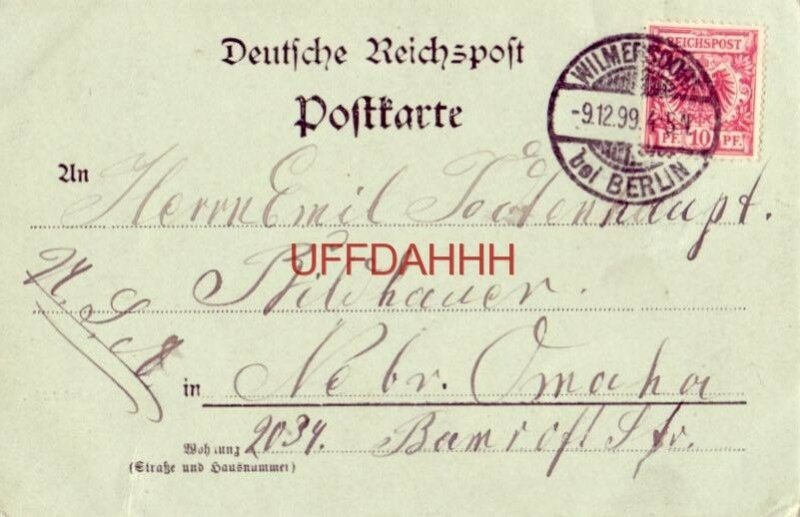 Deutsche Reichspost
Postkarte
REICHSPOST
10 PF.
WILMERSDORF
-9.12.99. 4-5 N.
bei BERLIN
An Herrn Emil Todtenhaupt.
UFFDAHHH
Bildhauer.
in Nebr. Omaha
Wohnung 2034. Bancroft Str.
(Straße und Hausnummer)